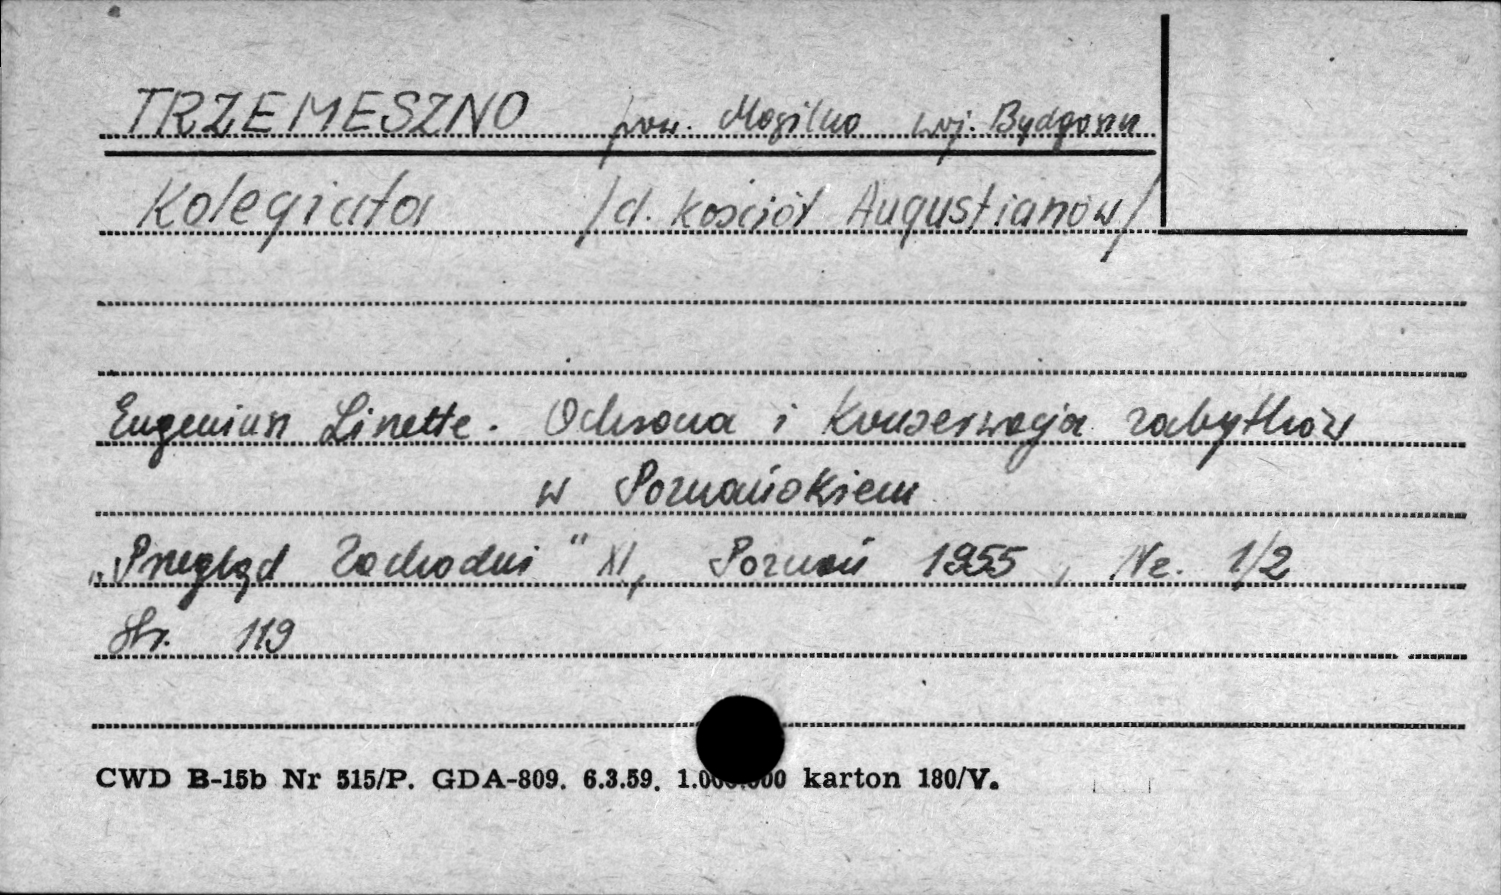 TRZEMESZNO pow. Mogilno woj. Bydgoszcz
Kolegiata /d. kościół Augustianów/
Eugeniusz Linette. Ochrona i Konserwacja zabytków
w Poznańskiem
„Przegląd Zachodni" XI, Poznań 1955, Nr. 1/2
Str. 119
CWD B-15b Nr 515/P. GDA-809. 6.3.59. 1.000.000 karton 180/V.